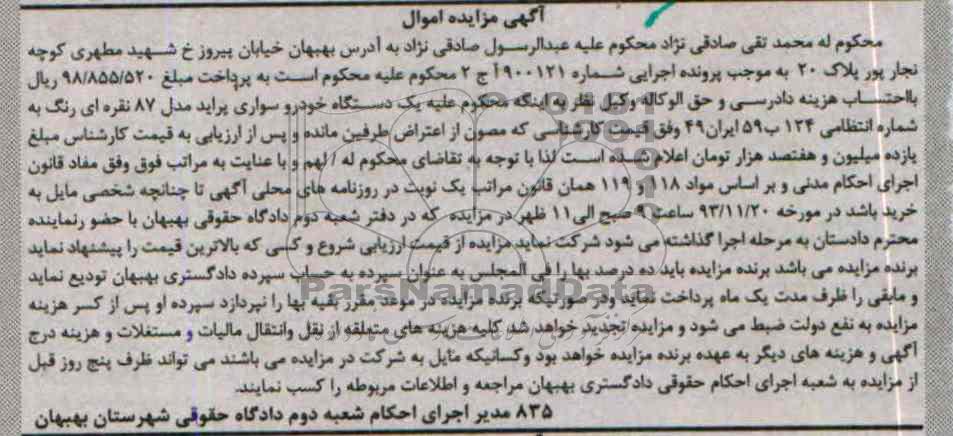 آگهی مزایده اموال
محکوم له محمد تقی صادقی نژاد محکوم علیه عبدالرسول صادقی نژاد به آدرس بهبهان خیابان پیروز خ شهید مطهری کوچه
نجار پور پلاک ۲۰ به موجب پرونده اجرایی شماره ۹۰۰۱۲۱ آ ج ۲ محکوم علیه محکوم است به پرداخت مبلغ ۹۸/۸۵۵/۵۲۰ ریال
بااحتساب هزینه دادرسی و حق الوکاله وکیل نظر به اینکه محکوم علیه یک دستگاه خودرو سواری پراید مدل ۸۷ نقره ای رنگ به
شماره انتظامی ۱۳۴ ب۵۹ ایران۴۹ وفق قیمت کارشناسی که مصون از اعتراض طرفین مانده و پس از ارزیابی به قیمت کارشناس مبلغ
یازده میلیون و هفتصد هزار تومان اعلام شده است لذا با توجه به تقاضای محکوم له / لهم و با عنایت به مراتب فوق وفق مفاد قانون
اجرای احکام مدنی و بر اساس مواد ۱۱۸ و ۱۱۹ همان قانون مراتب یک نوبت در روزنامه های محلی آگهی تا چنانچه شخصی مایل به
خرید باشد در مورخه ۹۳/۱۱/۲۰ ساعت ۹ صبح الی۱۱ ظهر در مزایده که در دفتر شعبه دوم دادگاه حقوقی بهبهان با حضو رنماینده
محترم دادستان به مرحله اجرا گذاشته می شود شرکت نماید مزایده از قیمت ارزیابی شروع و کسی که بالاترین قیمت را پیشنهاد نماید
برنده مزایده می باشد برنده مزایده باید ده درصد بها را فی المجلس به عنوان سپرده به حساب سپرده دادگستری بهبهان تودیع نماید
و مابقی را ظرف مدت یک ماه پرداخت نماید ودر صورتیکه برنده مزایده در موعد مقرر بقیه بها را نپردازد سپرده او پس از کسر هزینه
مزایده به نفع دولت ضبط می شود و مزایده تجدید خواهد شد کلیه هزینه های متعلقه از نقل وانتقال مالیات و مستغلات و هزینه درج
آگهی و هزینه های دیگر به عهده برنده مزایده خواهد بود وکسانیکه مایل به شرکت در مزایده می باشند می تواند ظرف پنج روز قبل
از مزایده به شعبه اجرای احکام حقوقی دادگستری بهبهان مراجعه و اطلاعات مربوطه را کسب نمایند.
۸۳۵ مدیر اجرای احکام شعبه دوم دادگاه حقوقی شهرستان بهبهان
ParsNamadData